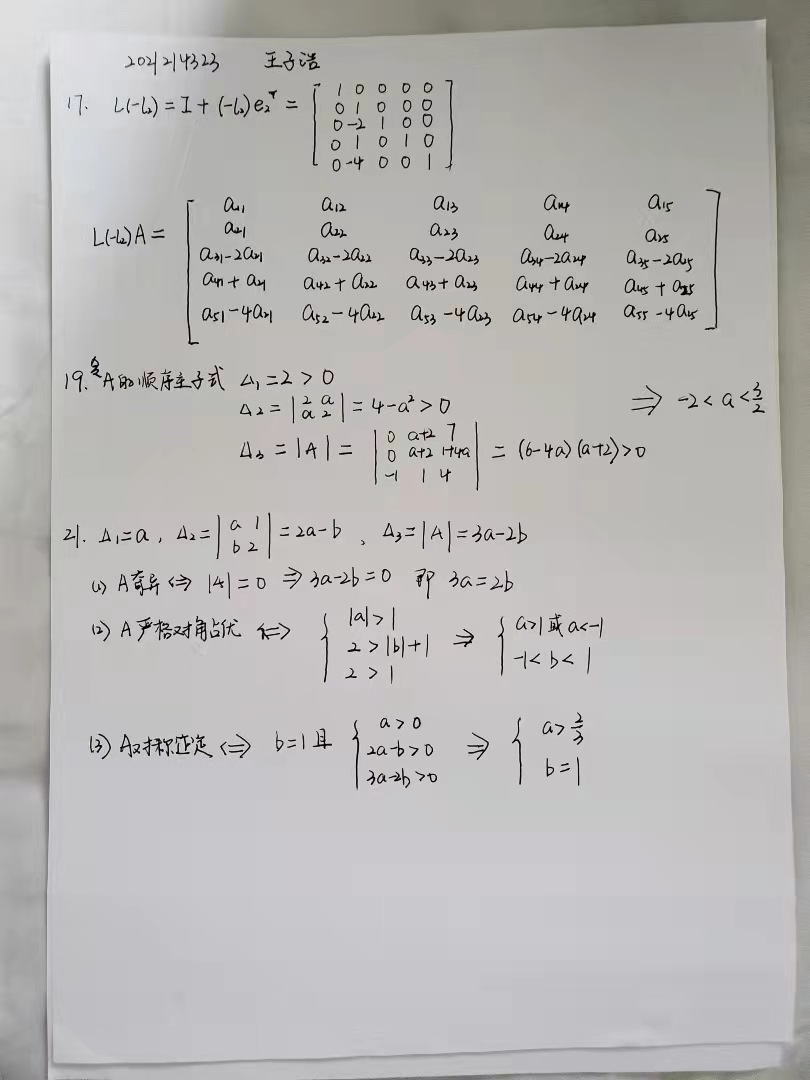 202124323 王子浩
17. L(-l₂) = I + (-l₂)e₂ᵀ = [1 0 0 0 0
0 1 0 0 0
0 -2 1 0 0
0 1 0 1 0
0 -4 0 0 1]
L(-l₂)A = [a₁₁ a₁₂ a₁₃ a₁₄ a₁₅
a₂₁ a₂₂ a₂₃ a₂₄ a₂₅
a₃₁-2a₂₁ a₃₂-2a₂₂ a₃₃-2a₂₃ a₃₄-2a₂₄ a₃₅-2a₂₅
a₄₁+a₂₁ a₄₂+a₂₂ a₄₃+a₂₃ a₄₄+a₂₄ a₄₅+a₂₅
a₅₁-4a₂₁ a₅₂-4a₂₂ a₅₃-4a₂₃ a₅₄-4a₂₄ a₅₅-4a₂₅]
19. A的顺序主子式 Δ₁=2>0
Δ₂=|2 a
a 2|=4-a²>0 ⇒ -2<a<3/2
Δ₃=|A|=|0 a+2 7
0 a+2 1+4a
-1 1 4|=(6-4a)(a+2)>0
21. Δ₁=a, Δ₂=|a 1
b 2|=2a-b, Δ₃=|A|=3a-2b
(1) A奇异⇔|A|=0 ⇒3a-2b=0 即 3a=2b
(2) A严格对角占优 ⇔ {|a|>1
2>|b|+1
2>1 ⇒ {a>1或a<-1
-1<b<1
(3) A对称正定⇔ b=1且 {a>0
2a-b>0
3a-2b>0 ⇒ {a>2/3
b=1